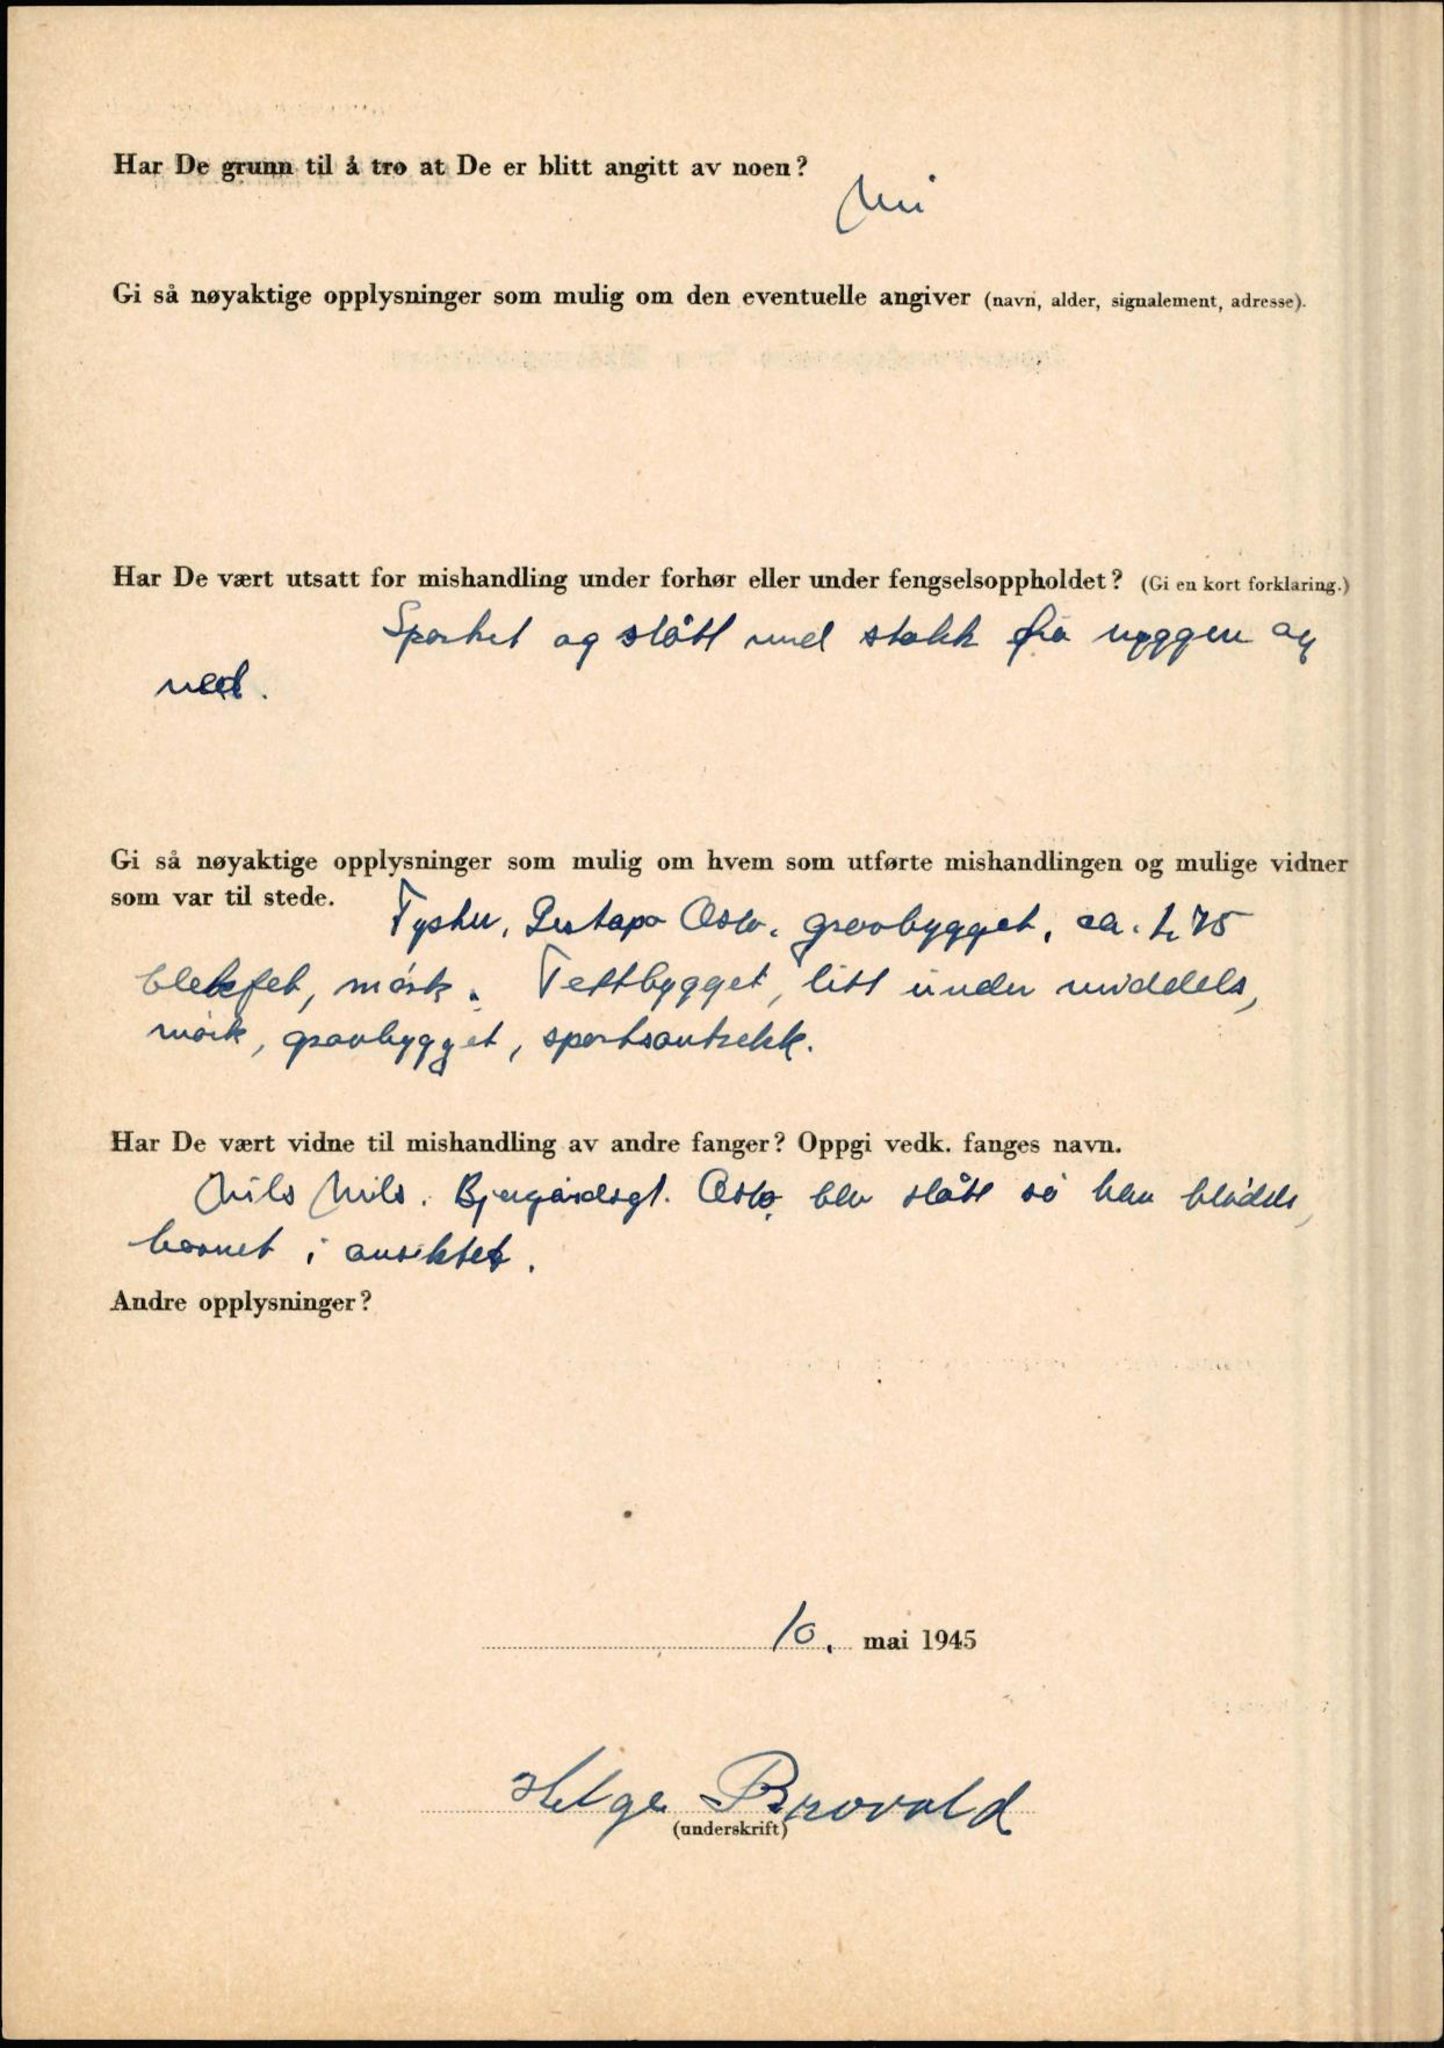 Har De grunn til å tro at De er blitt angitt av noen?
Nei
Gi så nøyaktige opplysninger som mulig om den eventuelle angiver (navn, alder, signalement, adresse).
Har De vært utsatt for mishandling under forhør eller under fengselsoppholdet? (Gi en kort forklaring.)
Sparket og slått med stokk fra ryggen og
ned.
Gi så nøyaktige opplysninger som mulig om hvem som utførte mishandlingen og mulige vidner
som var til stede. Tysker, Gestapo Oslo. grovbygget, ca. 1,75
blekfet, mørk. Tettbygget, litt under middels,
mørk, grovbygget, sportsantrekk.
Har De vært vidne til mishandling av andre fanger? Oppgi vedk. fanges navn.
Nils Nils. Bjergårdsgt. Oslo, blev slått så han blødde,
hovnet i ansiktet.
Andre opplysninger?
10. mai 1945
Helge Brovold
(underskrift)